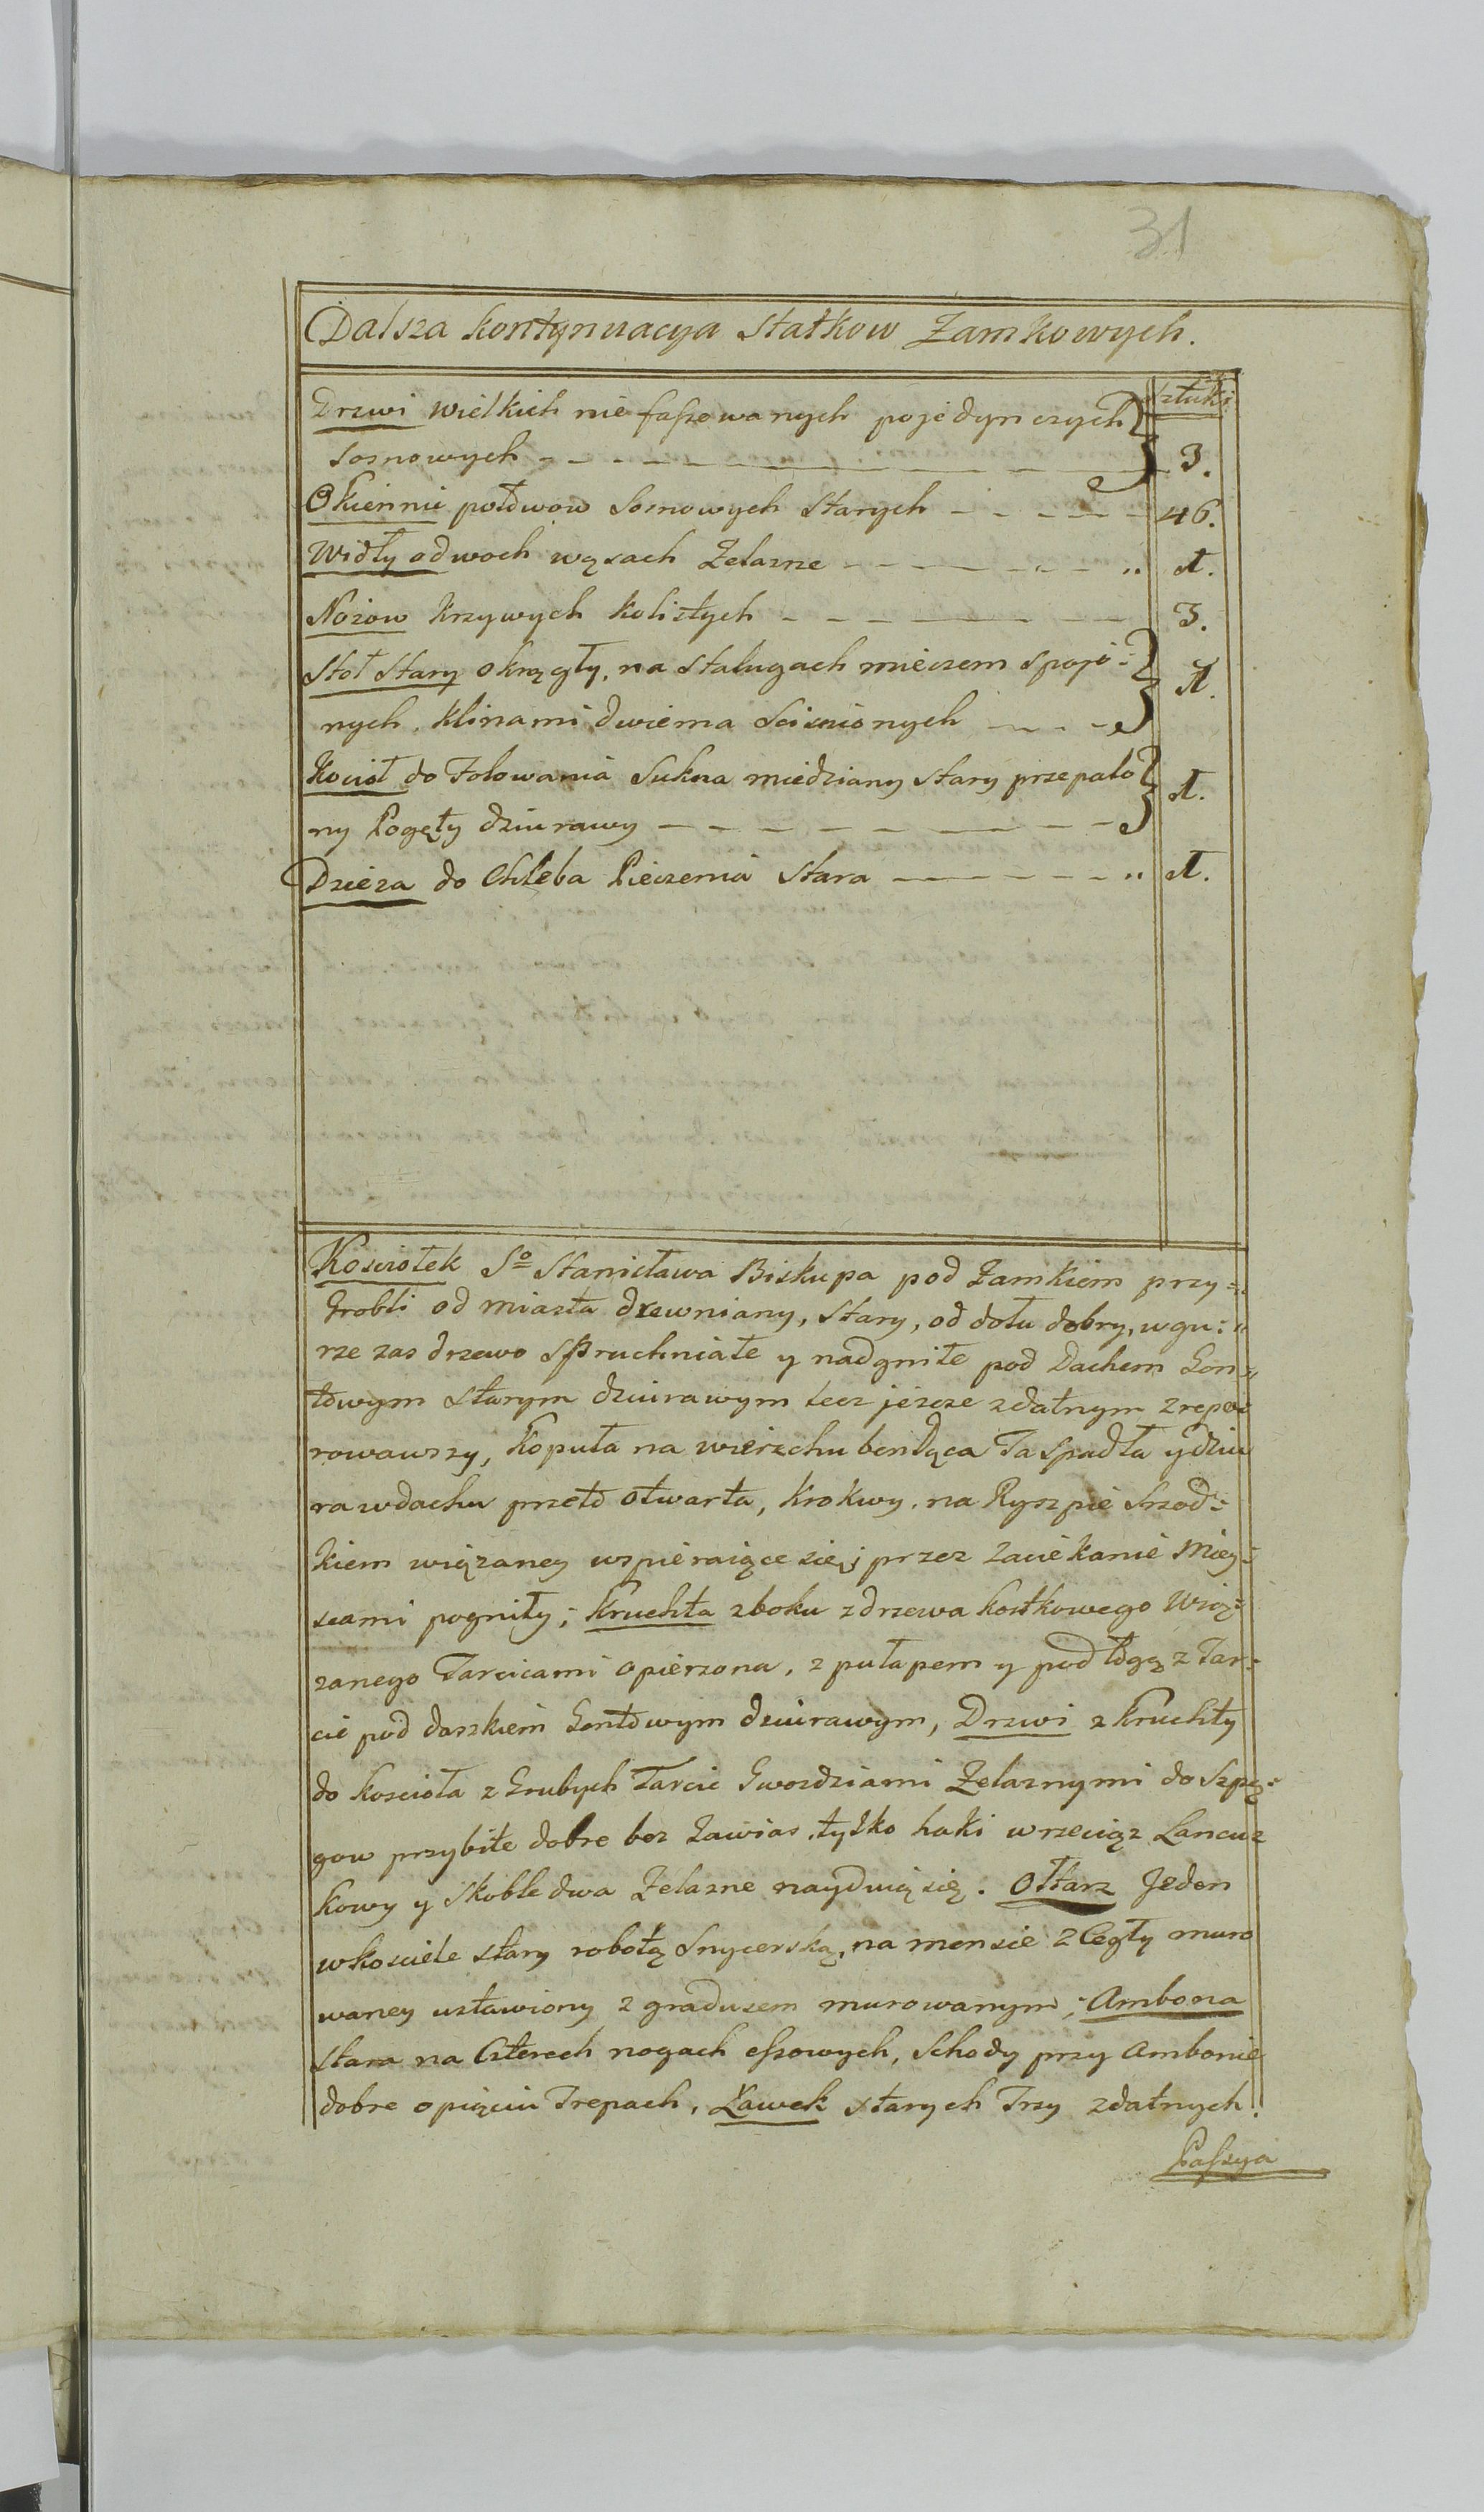 31
Dalsza kontynuacya Statkow Zamkowych.
Sztuki
Drzwi wielkich nie faszowanych pojedynczych
sosnowych - - - - - - 3.
Okiennic połowow Sosnowych Starych - - - - - 46.
Widły o dwoch wąsach Żelazne - - - - - - „ 1.
Nożow krzywych kolistych - - - - - - 3.
Stoł Stary okrągły, na stalugach mieczem spojo=
nych, klinami dwiema scisnionych - - - 1.
Kocioł do Folowania Sukna miedziany stary przepalo
ny Pogęty dziurawy - - - - - - - - 1.
Dzieza do Chleba Pieczenia Stara - - - - - „ 1.
Kosciołek So Stanisława Biskupa pod Zamkiem przy=
Grobli od miasta drewniany, stary, od dołu dobry, wgu=
rze zas drzewo spruchniałe y nadgniłe pod Dachem Gon=
towym starym dziurawym lecz jeszcze zdatnym zrepe
rowawszy, Kopuła na wierzchu bendąca Ta spadła y dziu
ra wdachu przeto otwarta, Krokwy, na Ryszpie Srzod=
kiem wiązaney wspieraiące się, przez zaciekanie Miey=
scami pogniły; Kruchta zboku zdrzewa kostkowego Wią=
zanego Tarcicami opierzona, z pułapem y podłogą z Tar=
cic pod daszkiem Gontowym dziurawym, Drzwi z Kruchty
do koscioła z Grubych Tarcic Gwozdziami Żelaznymi do Szpą=
gow przybite dobre bez Zawias, tylko haki wrzeciąz Lancusz
kowy y skoble dwa Żelazne nayduią się. Ołtarz Jeden
wkosciele stary robotą Snycerską, na mensie z Cegły muro
waney ustawiony z gradusem murowanym; Ambona
stara na Czterech nogach eszowych, Schody przy Ambonie
dobre o pięciu Trepach, Ławek starych Trzy zdatnych.
Paszya